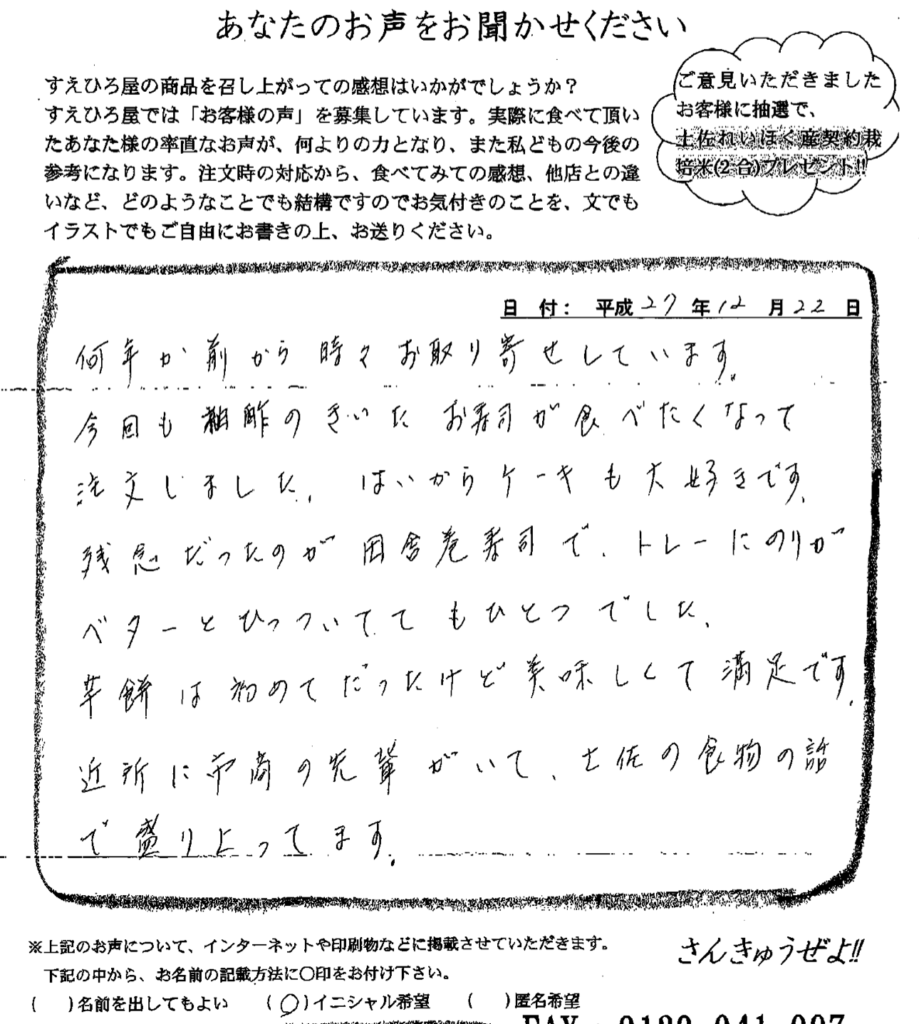 あなたのお声をお聞かせください
すえひろ屋の商品を召し上がっての感想はいかがでしょうか？
すえひろ屋では「お客様の声」を募集しています。実際に食べて頂い
たあなた様の率直なお声が、何よりの力となり、また私どもの今後の
参考になります。注文時の対応から、食べてみての感想、他店との違
いなど、どのようなことでも結構ですのでお気付きのことを、文でも
イラストでもご自由にお書きの上、お送りください。
ご意見いただきました
お客様に抽選で、
土佐れいほく産契約栽
培米(2合)プレゼント!!
日 付： 平成 27 年 12 月 22 日
何年か前から時々お取り寄せしています。
今回も柚酢のきいたお寿司が食べたくなって
注文しました。はいからケーキも大好きです。
残念だったのが田舎巻寿司で、トレーにのりが
ベターとひっついててもひとつでした。
草餅は初めてだったけど美味しくて満足です。
近所に市商の先輩がいて、土佐の食物の話
で盛り上ってます。
※上記のお声について、インターネットや印刷物などに掲載させていただきます。
下記の中から、お名前の記載方法に〇印をお付け下さい。
さんきゅうぜよ!!
(　)名前を出してもよい　(〇)イニシャル希望　(　)匿名希望
FAX：0120-041-007